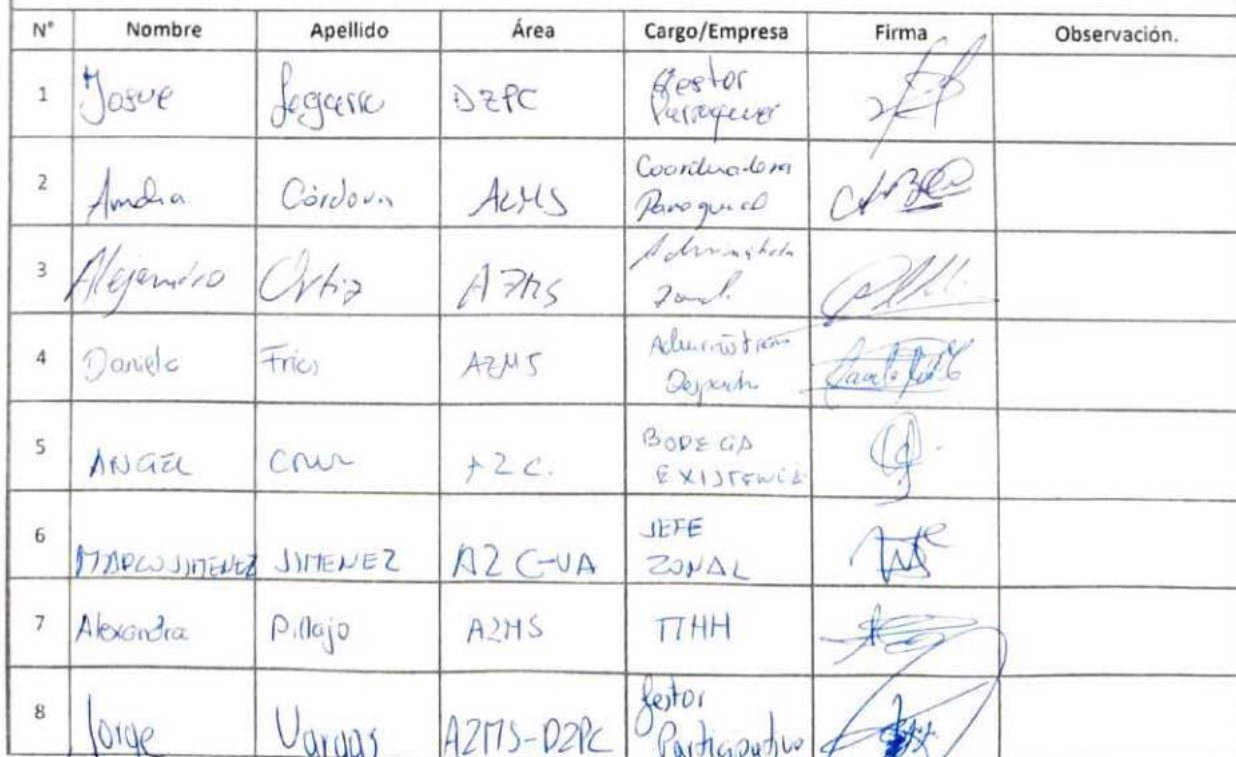 N° Nombre Apellido Área Cargo/Empresa Firma Observación.
1 Josue DZPC Gestor
2 Andrea Córdova AZMS Coordinadora
Parroquial
3 Alejandro Ortiz AZMS
Zonal
4 Daniela Frias AZMS
Despacho
5 ANGEL CRUZ AZC. BODEGA
EXISTENCIA
6 MARCO JIMENEZ JIMENEZ AZC-VA JEFE
ZONAL
7 Alexandra Pillajo AZMS TTHH
8 Jorge Vargas AZMS-DZPC Gestor
Participativo